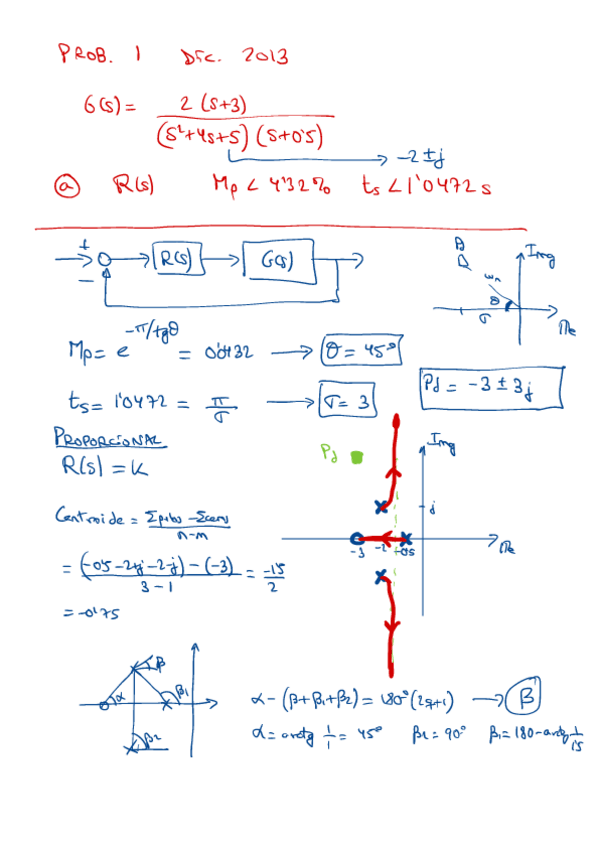 PROB. 1 Dic. 2013
G(s) = 2 (s+3) / (s²+4s+5) (s+0'5)
→ -2 ± j
ⓐ R(s) Mp < 4'32% ts < 1'0472 s
+ R(s) G(s)
−
Pd Img
ωn
θ
σ
Re
Mp = e^(-π/tgθ) = 0'0432 → θ = 45°
Pd = -3 ± 3j
ts = 1'0472 = π/σ → σ = 3
PROPORCIONAL
R(s) = K
Pd Img
j
-3 -2 -0'5 Re
Centroide = Σpolos - Σceros / n-m
= (-0'5-2+j-2-j) - (-3) / 3-1 = -1'5 / 2
= -0'75
β
α β1
β2
α - (β+β1+β2) = 180° (2q+1) → β
α = arctg 1/1 = 45° β2 = 90° β1 = 180 - arctg 1/1'5